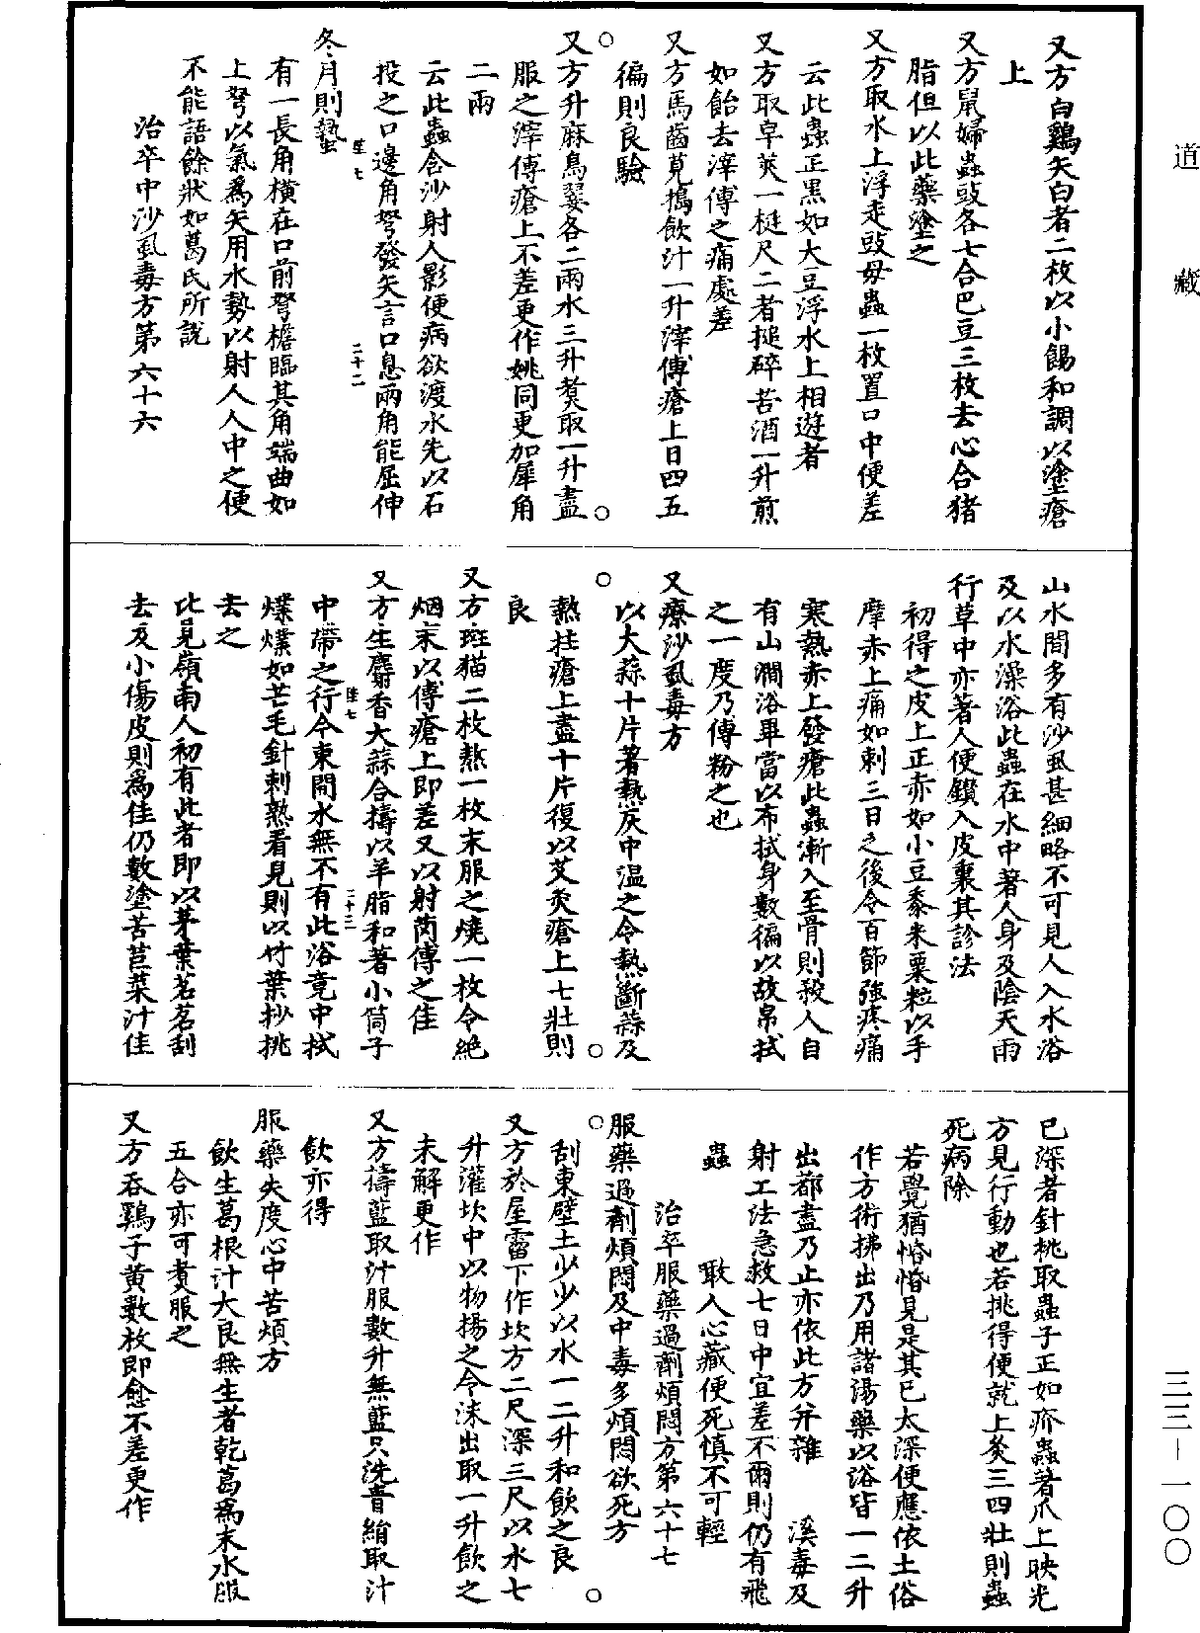 道藏
又方白鷄矢白者二枚以小餳和調以塗瘡
上
又方鼠婦蟲豉各七合巴豆三枚去心合猪
脂但以此藥塗之
又方取水上浮走豉母蟲一枚置口中便差
云此蟲正黑如大豆浮水上相遊者
又方取皁莢一梃尺二者搥碎苦酒一升煎
如飴去滓傅之痛處差
又方馬齒莧搗飲汁一升滓傅瘡上日四五
徧則良驗
○
○
又方升麻鳥翣各二兩水三升煑取一升盡
服之滓傅瘡上不差更作姚同更加犀角
二兩
云此蟲含沙射人影便病欲渡水先以石
投之口邊角弩發矢言口息兩角能屈伸
陸七
二十二
冬月則蟄
有一長角橫在口前弩檐臨其角端曲如
上弩以氣爲矢用水勢以射人人中之便
不能語餘狀如葛氏所說
治卒中沙虱毒方第六十六
山水間多有沙虱甚細略不可見人入水浴
及以水澡浴此蟲在水中著人身及陰天雨
行草中亦著人便鑽入皮裏其診法
初得之皮上正赤如小豆黍米粟粒以手
摩赤上痛如刺三日之後令百節強疼痛
寒熱赤上發瘡此蟲漸入至骨則殺人自
有山澗浴畢當以布拭身數徧以故帛拭
之一度乃傅粉之也
又療沙虱毒方
以大蒜十片著熱灰中温之令熱斷蒜及
○
○
熱拄瘡上盡十片復以艾灸瘡上七壯則
良
又方斑猫二枚熬一枚末服之燒一枚令絶
烟末以傅瘡上即差又以射䒷傅之佳
又方生麝香大蒜合擣以羊脂和著小筒子
陸七
二十二
中帶之行今東間水無不有此浴竟中拭
爍爍如芒毛針刺熟看見則以竹葉抄挑
去之
比見嶺南人初有此者即以茅葉茗茗刮
去及小傷皮則爲佳仍數塗苦苣菜汁佳
已深者針挑取蟲子正如疥蟲著爪上映光
方見行動也若挑得便就上灸三四壯則蟲
死病除
若覺猶惛惛見是其已太深便應依土俗
作方術拂出乃用諸湯藥以浴皆一二升
出都盡乃止亦依此方并雜　溪毒及
射工法急救七日中宜差不爾則仍有飛
蟲　噉人心藏便死慎不可輕
治卒服藥過劑煩悶方第六十七
服藥過劑煩悶及中毒多煩悶欲死方
○
○
刮東壁土少少以水一二升和飲之良
又方於屋霤下作坎方二尺深三尺以水七
升灌坎中以物揚之令沫出取一升飲之
未解更作
又方擣藍取汁服數升無藍只洗青絹取汁
飲亦得
服藥失度心中苦煩方
飲生葛根汁大良無生者乾葛爲末水服
五合亦可煑服之
又方吞鷄子黄數枚即愈不差更作
三三—一〇〇